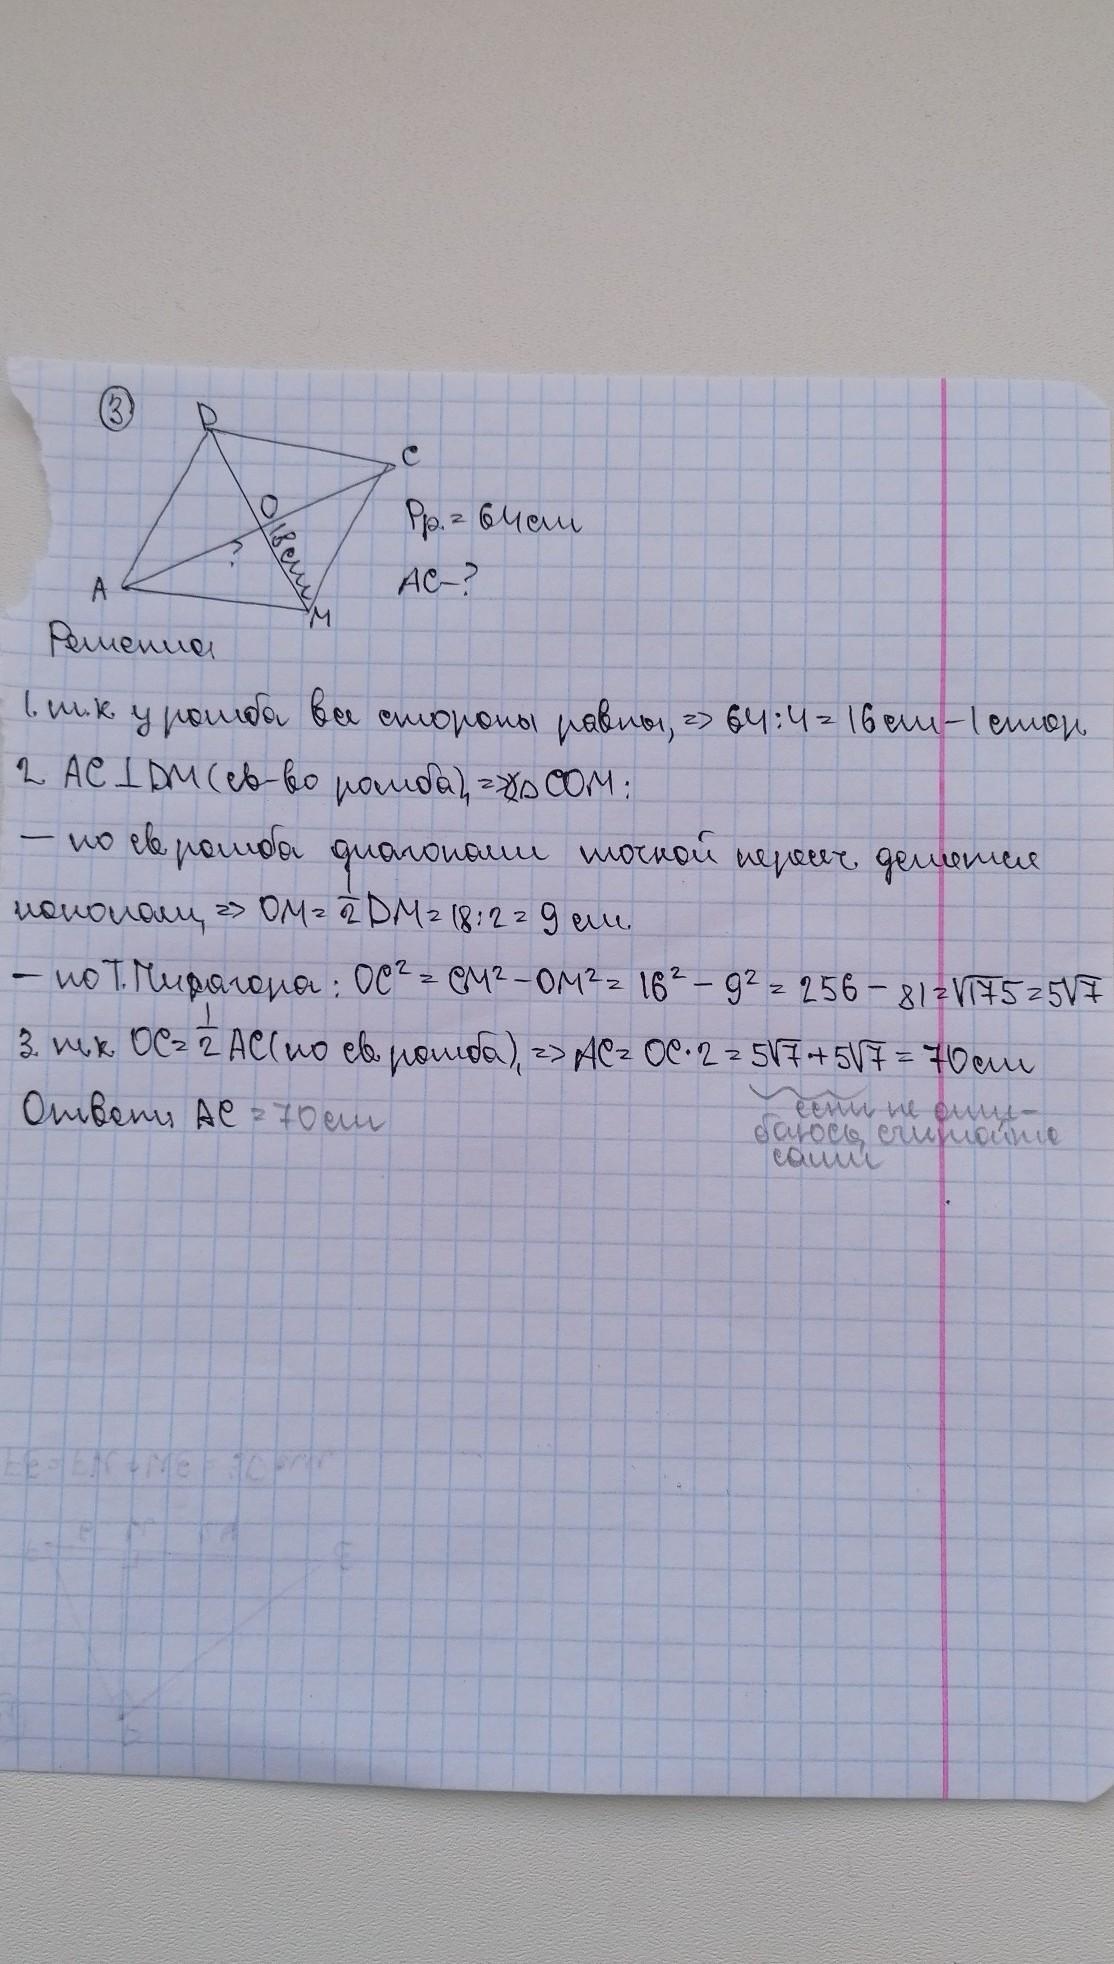 3
D
C
O
Pр. = 64см
18см
?
AC-?
A
M
Решение
1. т.к у ромба все стороны равны, => 64:4=16см-1стор.
2. AC⊥DM(св-во ромба), => △COM:
— по св ромба диагонали точкой пересч. делятся
пополам, => OM = 1/2 DM = 18:2 = 9 см.
— по Т. Пифагора: OC² = CM² - OM² = 16² - 9² = 256 - 81 = √175 = 5√7
3. т.к OC = 1/2 AC(по св ромба), => AC = OC·2 = 5√7 + 5√7 = 70см
Ответ: AC = 70см
если не оши-
баюсь, считайте
сами